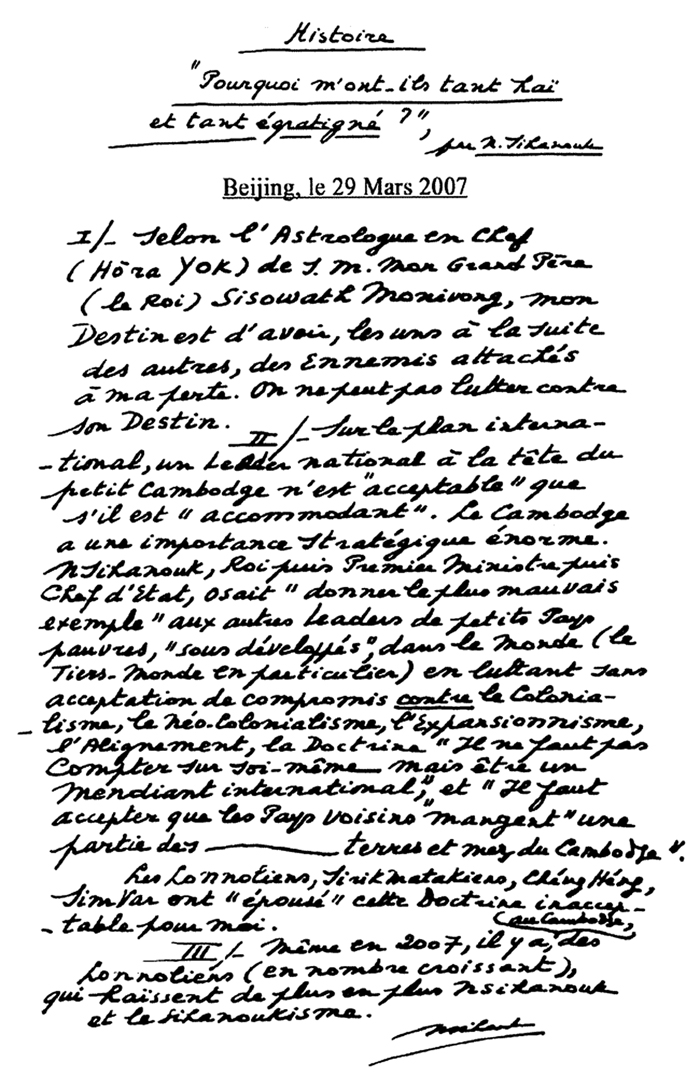 Histoire
"Pourquoi m'ont-ils tant haï
et tant égratigné ?",
par N. Sihanouk
Beijing, le 29 Mars 2007
I/- Selon l'Astrologue en Chef
(Hôra YOK) de S. M. Mon Grand Père
(le Roi) Sisowath Monivong, mon
Destin est d'avoir, les uns à la suite
des autres, des Ennemis attachés
à ma perte. On ne peut pas lutter contre
son Destin.
II/- Sur le plan interna-
-tional, un Leader national à la tête du
petit Cambodge n'est "acceptable" que
s'il est "accommodant". Le Cambodge
a une importance stratégique énorme.
NSihanouk, Roi puis Premier Ministre puis
Chef d'Etat, osait "donner le plus mauvais
exemple" aux autres Leaders de petits Pays
pauvres, "sous développés", dans le Monde (le
Tiers-Monde en particulier) en luttant sans
acceptation de compromis contre le Colonia-
-lisme, le Néo-Colonialisme, l'Expansionnisme,
l'Alignement, la Doctrine "Il ne faut pas
Compter sur soi-même mais être un
Mendiant international", et "Il faut
accepter que les Pays voisins "mangent" une
partie des terres et mers du Cambodge".
Les Lonnoliens, Sirikmatakiens, Chéng Héng,
Sim Var ont "épousé" cette Doctrine inaccep-
-table pour moi.
III/- Même en 2007, il y a, (au Cambodge, des
Lonnoliens (en nombre croissant),
qui haïssent de plus en plus NSihanouk
et le Sihanoukisme.